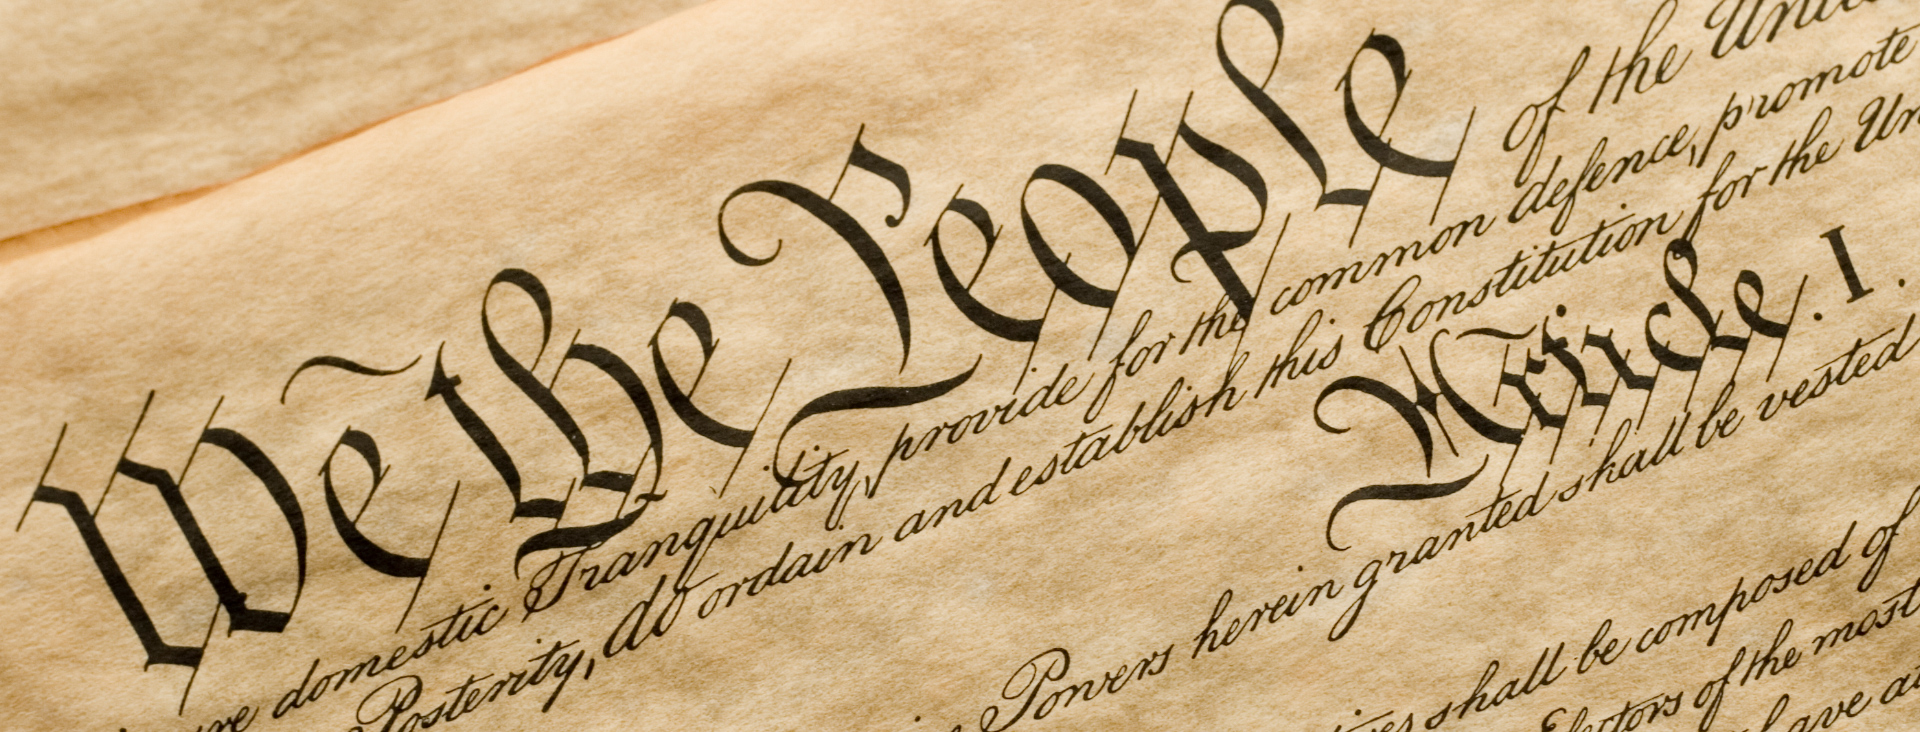 We the People of the
domestic Tranquility, provide for the common defence, promote
Posterity, do ordain and establish this Constitution for the
Article. I.
Powers herein granted shall be vested
shall be composed of
Electors of the most
have